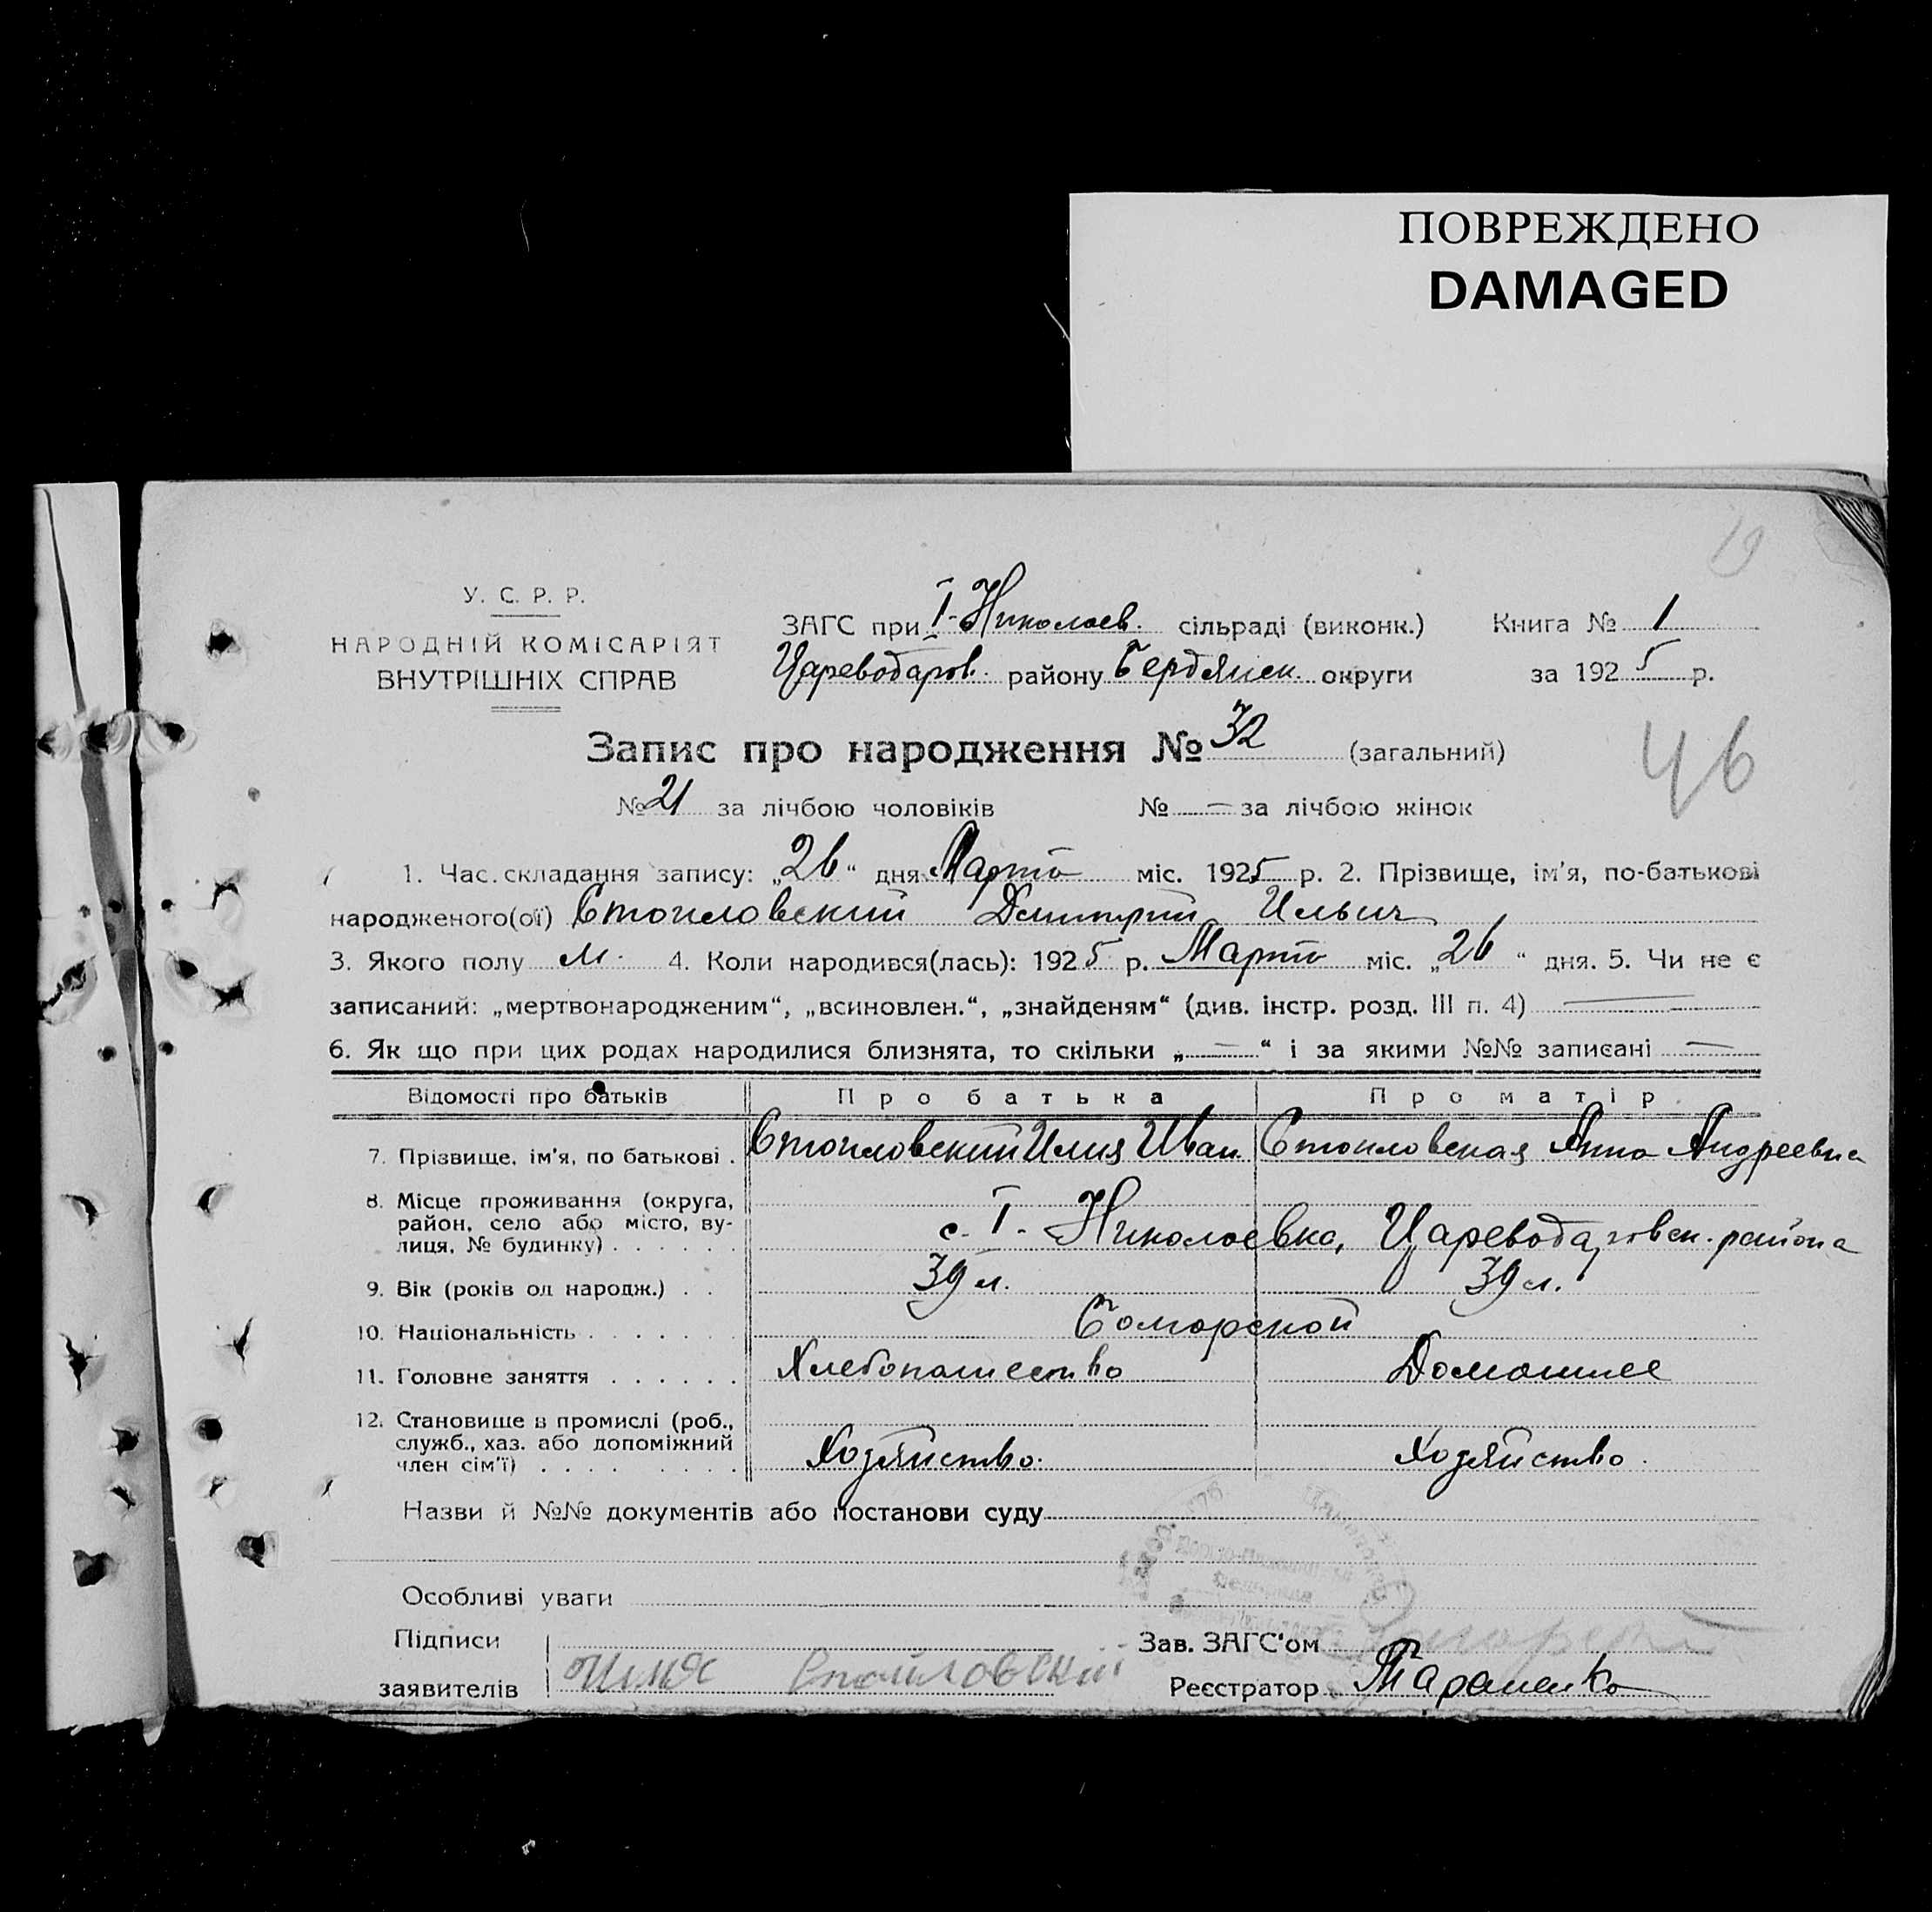 ПОВРЕЖДЕНО
DAMAGED
19
У. С. Р. Р.
НАРОДНІЙ КОМІСАРІЯТ
ВНУТРІШНІХ СПРАВ
ЗАГС при І-Николаев. сільраді (виконк.)
Цареводаров. району Бердянск. округи
Книга № 1
за 1925 р.
Запис про народження № 32 (загальний)
46
№ 21 за лічбою чоловіків № — за лічбою жінок
1. Час складання запису: „26“ дня Марта міс. 1925 р. 2. Прізвище, ім'я, по-батькові
народженого(ої) Стоиловский Димитрий Ильич
3. Якого полу м. 4. Коли народився(лась): 1925 р. Марта міс. „26“ дня. 5. Чи не є
записаний: „мертвонародженим“, „всиновлен.“, „знайденям“ (див. інстр. розд. III п. 4) —
6. Як що при цих родах народилися близнята, то скільки „—“ і за якими №№ записані —
Відомості про батьків Про батька Про матір
7. Прізвище, ім'я, по батькові . Стоиловский Илия Иван. Стоиловская Анна Андреевна
8. Місце проживання (округа,
район, село або місто, ву-
лиця, № будинку) . . . . . . с. І-Николаевка, Цареводаровск. района
9. Вік (років од народж.) . . 39 л. 39 л.
10. Національність . . . . . . . Болгарской
11. Головне заняття . . . . . . Хлебопашество Домашнее
12. Становище в промислі (роб.,
служб., хаз. або допоміжний
член сім'ї) . . . . . . . . Хозяйство. Хозяйство.
Назви й №№ документів або постанови суду
Особливі уваги
Підписи
заявителів Илия Стоиловский
Зав. ЗАГС'ом
Реєстратор Тараненко